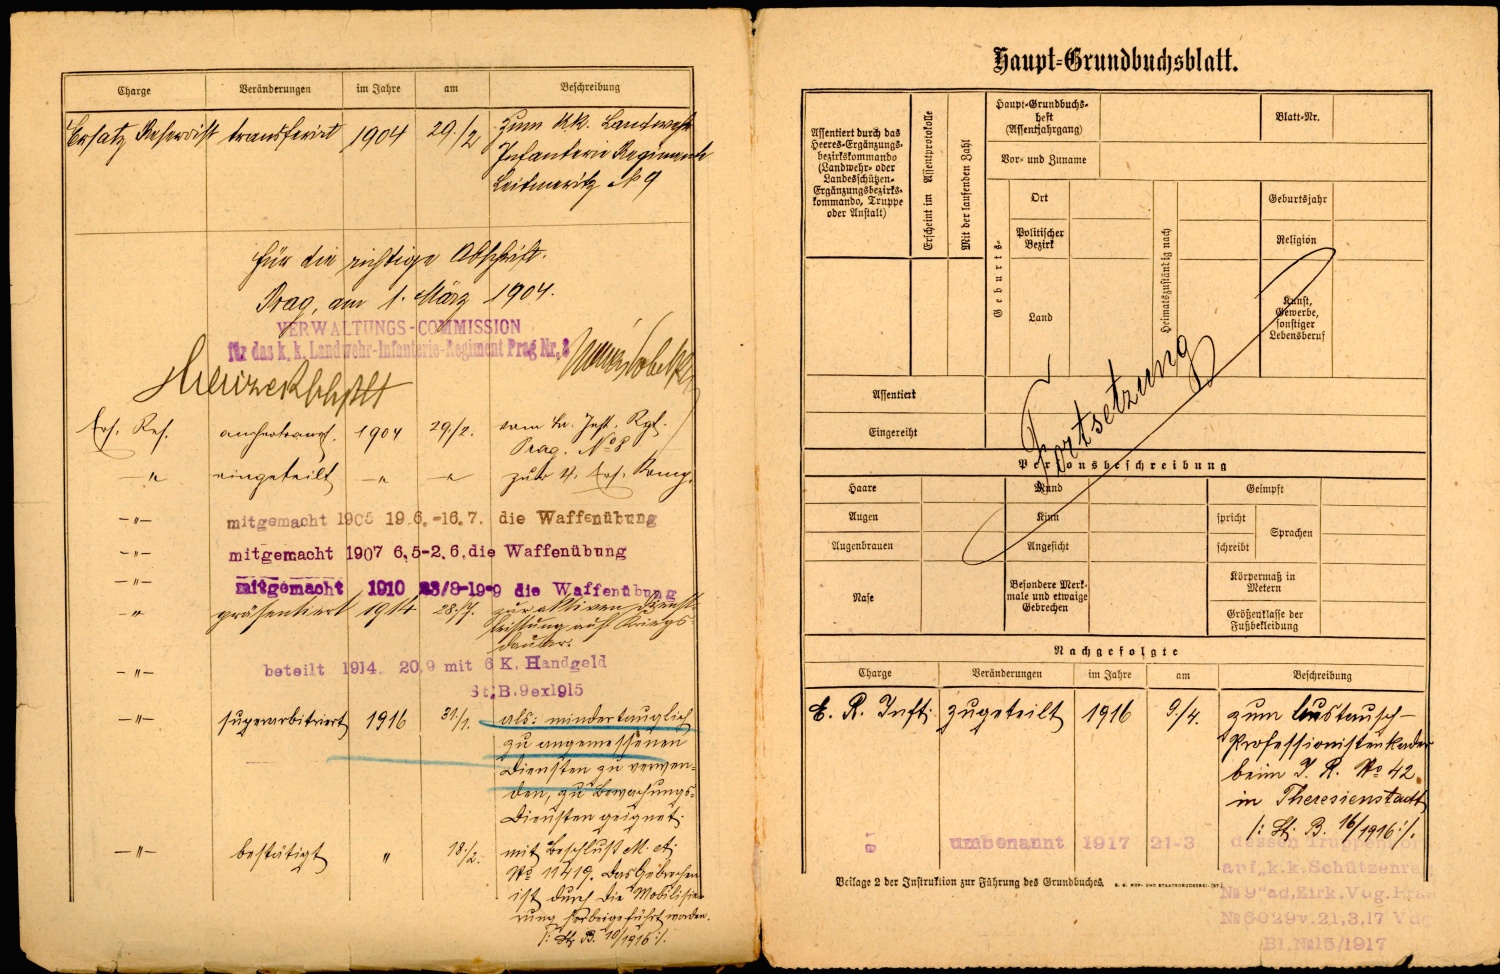 Charge Veränderungen im Jahre am Beschreibung
Ersatz Reservist transferirt 1904 29./2 Zum kk. Landwehr
Infanterie Regimente
Leitmeritz № 9
für die richtige Abschrift.
Prag, am 1. März 1904.
VERWALTUNGS-COMMISSION
für das k. k. Landwehr-Infanterie-Regiment Prag Nr. 8
Ers. Res. anhertransf. 1904 29/2. vom Lw. Inft. Rgt.
Prag. № 8
" eingeteilt " " zur 4. Ers. Komp.
" mitgemacht 1905 19.6.-16.7. die Waffenübung
" mitgemacht 1907 6.5-2.6. die Waffenübung
" mitgemacht 1910 23/8-19-9 die Waffenübung
" präsentiert 1914 28./7. zur aktiven Dienst-
leistung auf Kriegs-
dauer.
" beteilt 1914. 20.9 mit 6 K. Handgeld
St.B.9ex1915
" superarbitriert 1916 31./1. als: mindertauglich
zu angemessenen
Diensten zu verwen-
den, zu Bewachungs-
Diensten geignet.
" bestätigt " 18./2. mit Beschluß M. A.
№ 11419. Das Gebrechen
ist durch die Mobilisie-
rung herbeigeführt worden.
/: St. B. 10/1916 :/.
Haupt-Grundbuchsblatt.
Assentiert durch das
Heeres-Ergänzungs-
bezirkskommando
(Landwehr- oder
Landesschützen-
Ergänzungsbezirks-
kommando, Truppe
oder Anstalt)
Erscheint im Assentprotokolle
Mit der laufenden Zahl
Haupt-Grundbuchs-
heft
(Assentjahrgang)
Blatt-Nr.
Vor- und Zuname
Geburts-
Ort
Politischer
Bezirk
Land
Heimatszuständig nach
Geburtsjahr
Religion
Kunst,
Gewerbe,
sonstiger
Lebensberuf
Assentiert
Eingereiht
Fortsetzung
Personsbeschreibung
Haare Mund Geimpft
Augen Kinn spricht Sprachen
Augenbrauen Angesicht schreibt
Nase
Besondere Merk-
male und etwaige
Gebrechen
Körpermaß in
Metern
Größenklasse der
Fußbekleidung
Nachgefolgte
Charge Veränderungen im Jahre am Beschreibung
E. R. Inft. zugeteilt 1916 9./4. zum Austausch-
Professionistenkader
beim I. R. № 42
in Theresienstadt
/: St. B. 16/1916 :/.
umbenannt 1917 21-3 dessen Truppenkör
auf „k.k.Schützenreg
№ 9" ad, Zirk. Vdg. Präs
№ 5029 v. 21.3.17 Vdg
Bl. № 15/1917
Beilage 2 der Instruktion zur Führung des Grundbuches. K. K. HOF- UND STAATSDRUCKEREI.